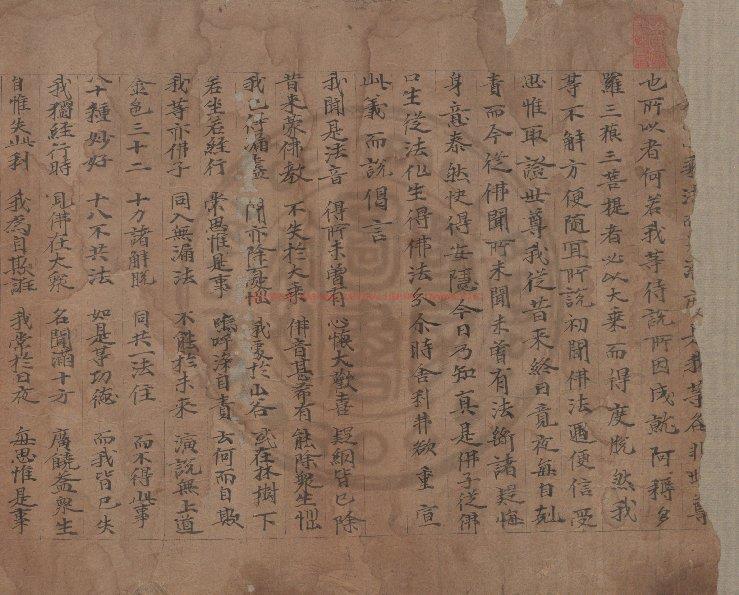 我等咎非世尊
也所以者何若我等待說所因成就阿耨多
羅三狠三菩提者必以大乗而得度脫然我
等不解方便隨宜所說初聞佛法遇便信受
思惟取證世尊我從昔来終日竟夜每自剋
責而今從佛聞所未聞未曾有法斷諸疑悔
身意泰然快得安隱今日乃知真是佛子從佛
口生從法化生得佛法分尒時舍利弗欲重宣
此義而說偈言
我聞是法音 得所未曾有 心懷大歡喜 疑網皆已除
昔来蒙佛教 不失於大乗 佛音甚希有 能除衆生惱
我已得漏盡 聞亦除憂惱 我處於山谷 或在林樹下
若坐若經行 常思惟是事 嗚呼深自責 云何而自欺
我等亦佛子 同入無漏法 不能於未来 演說無上道
金色三十二 十力諸解脫 同共一法住 而不得此事
八十種妙好 十八不共法 如是等功德 而我皆已失
我獨經行時 見佛在大衆 名聞滿十方 廣饒益衆生
自惟失此利 我為自欺誑 我常於日夜 每思惟是事